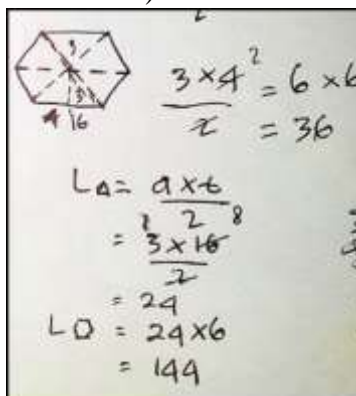 3
3
4 16
3 × 4² = 6 × 6
2
= 36
L△ = a × t
2
= 3 × 16 8
2
= 24
L⬡ = 24 × 6
= 144